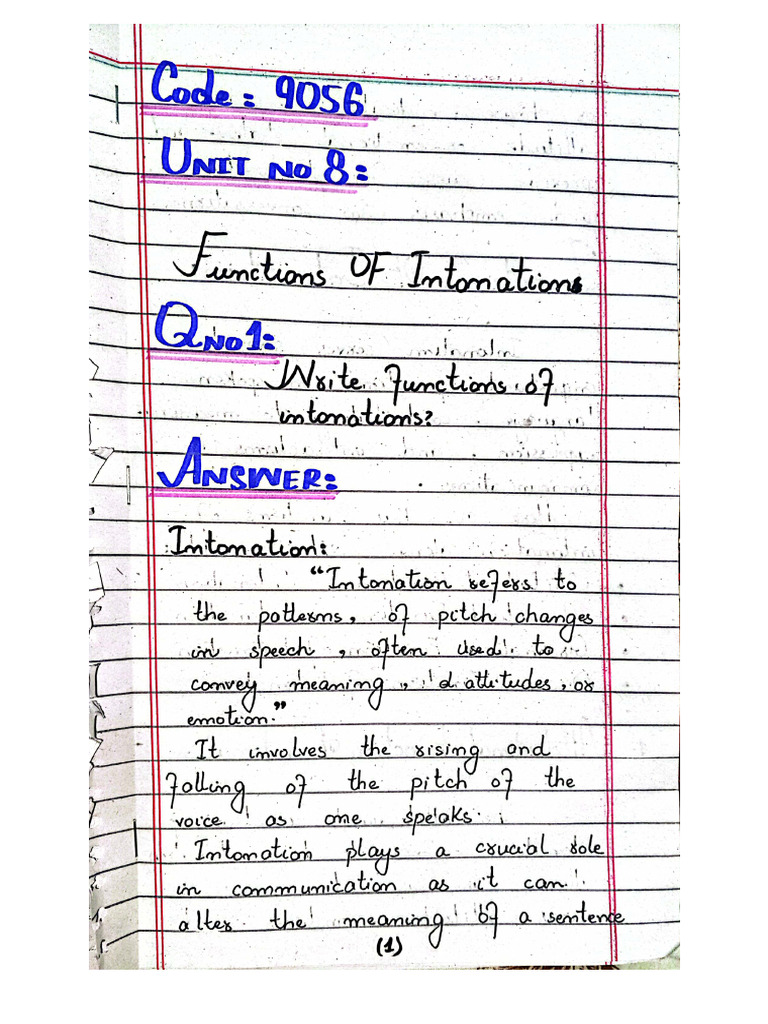 Code: 9056
UNIT NO 8:
Functions OF Intonations
QNO1:
Write functions of
intonations?
ANSWER:
Intonation:
"Intonation refers to
the patterns, of pitch changes
in speech, often used to
convey meaning, attitudes, or
emotion."
It involves the rising and
falling of the pitch of the
voice as one speaks.
Intonation plays a crucial role
in communication as it can
alter the meaning of a sentence
(1)